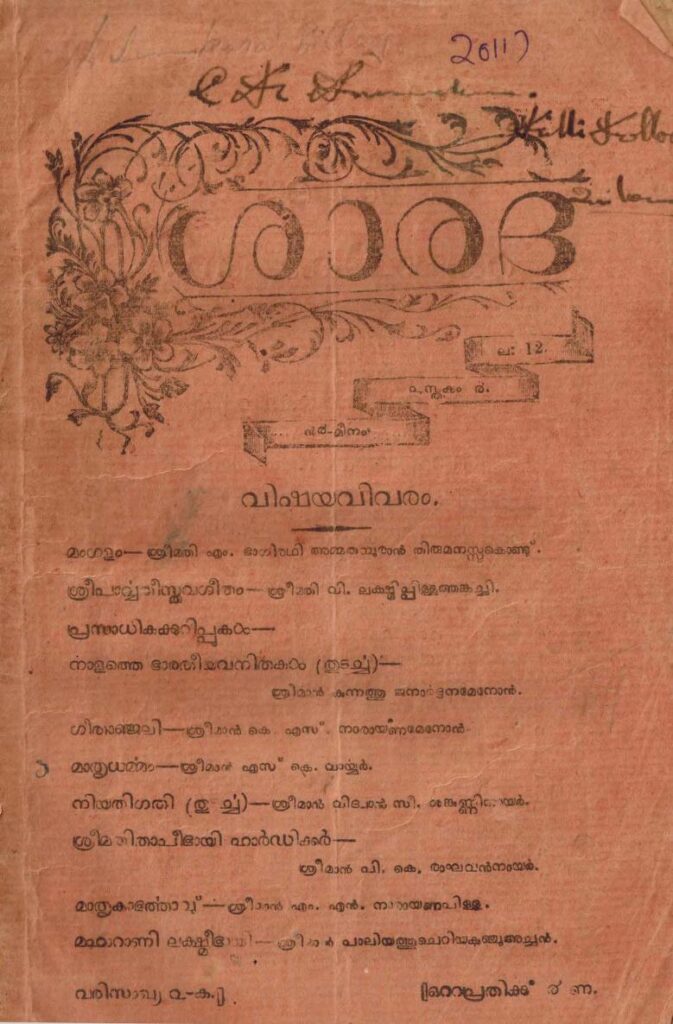 2011
ശാരദ
ല: 12.
പുസ്തകം ൪.
മീനം
വിഷയവിവരം.
മംഗളം— ശ്രീമതി എം. ഭാഗീരഥി അമ്മതമ്പുരാൻ തിരുമനസ്സുകൊണ്ട്.
ശ്രീപാർവ്വതീസ്തവഗീതം— ശ്രീമതി വി. ലക്ഷ്മിപ്പിള്ളത്തങ്കച്ചി.
പ്രസാധികക്കുറിപ്പുകൾ—
നാളത്തെ ഭാരതീയവനിതകൾ (തുടർച്ച)—
ശ്രീമാൻ കുന്നത്തു ജനാർദ്ദനമേനോൻ.
ഗീതാഞ്ജലി— ശ്രീമാൻ കെ. എസ്. നാരായണമേനോൻ.
മാതൃധർമ്മം— ശ്രീമാൻ എസ് കെ. വായ്യർ.
നിയതിഗതി (തുടർച്ച)— ശ്രീമാൻ വിദ്വാൻ സി. ശങ്കുണ്ണിനായർ.
ശ്രീമതി ഹാർഡിക്കർ—
ശ്രീമാൻ പി. കെ. രാഘവൻനായർ.
മാതൃകാഭർത്താവ്— ശ്രീമാൻ എം. എൻ. നാരായണപിള്ള.
മഹാറാണി ലക്ഷ്മീഭായി— ശ്രീമാൻ പാലിയത്തുചെറിയകുഞ്ഞുഅച്ചൻ.
വരിസംഖ്യ ൨-ക.] [ഒററപ്രതിക്ക് ൪ ണ.